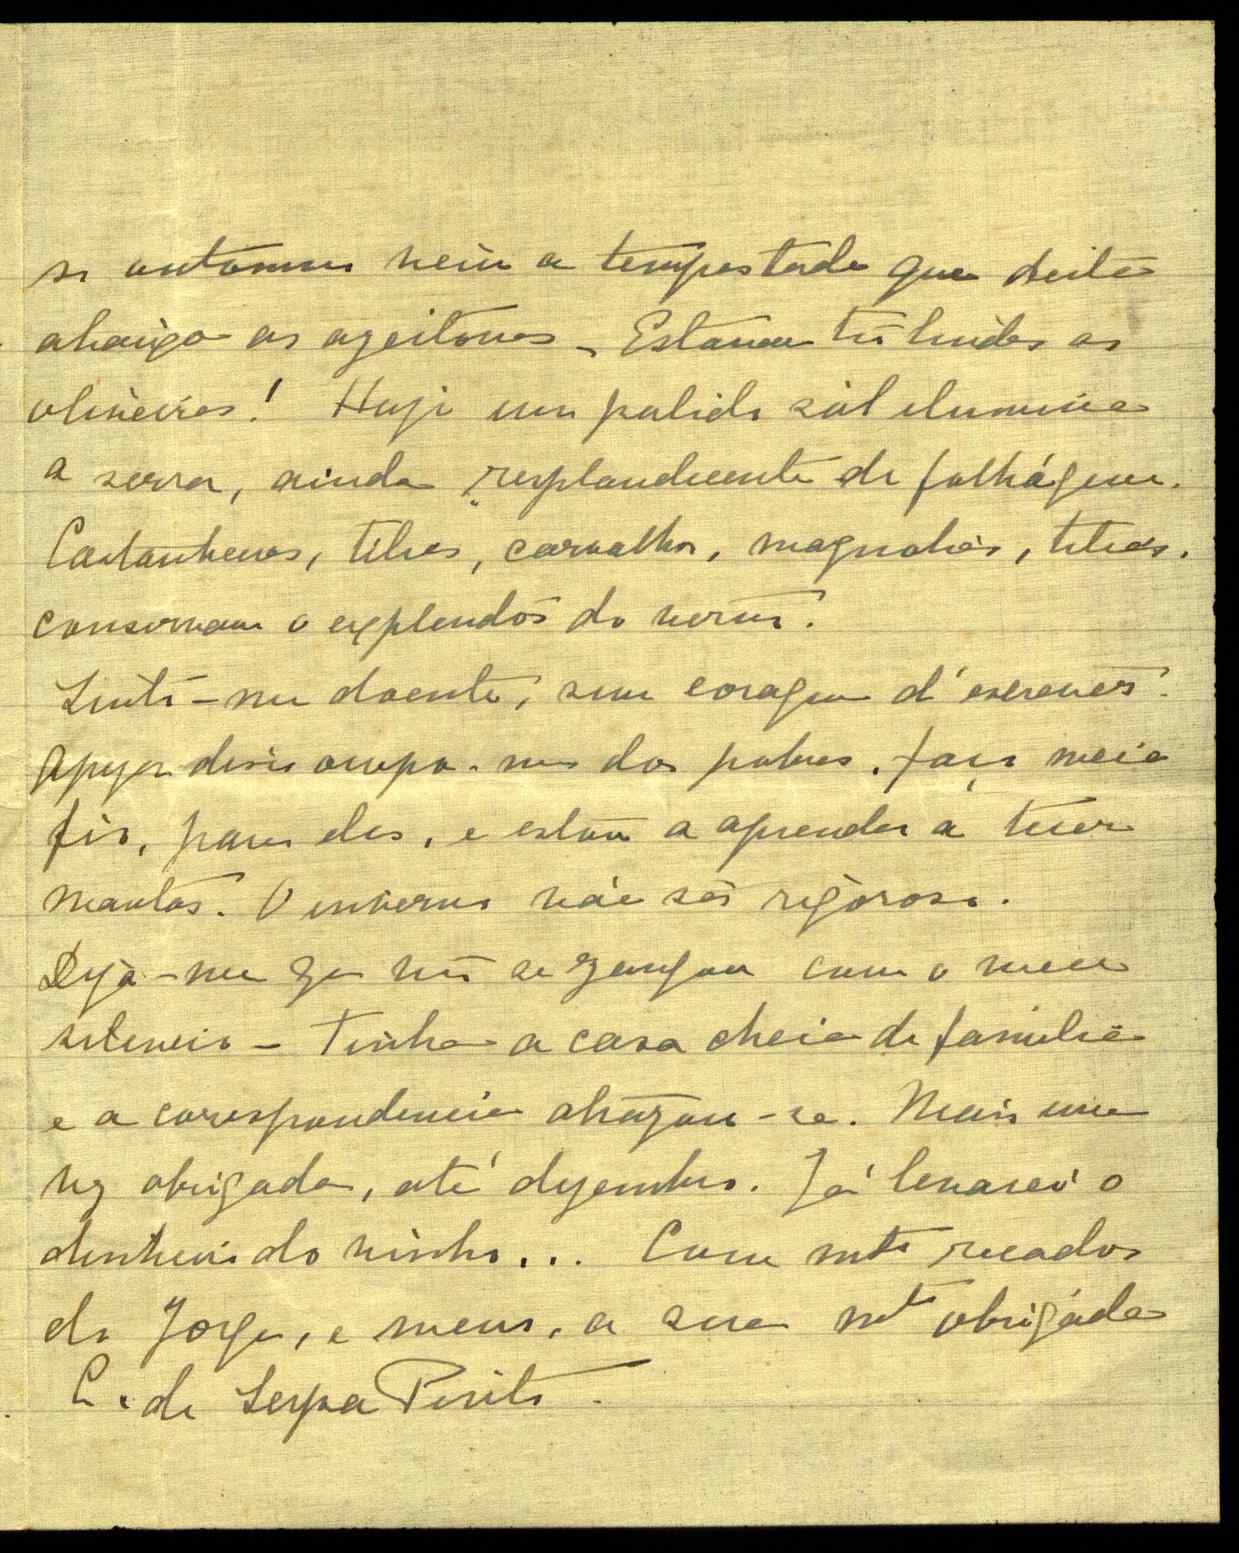 so outomno veiu a tempestade que deita
abaixo as azeitonas – Estavam tã lindas as
oliveiras! Hoje um palido sól ilumina
a serra, ainda resplandecente de folhágem.
Castanheiros, tilias, carvalhos, magnolias, tilias.
conservam o explendôr do verão.
Sinto-me doente, sem coragem d'escrever.
Apezar disso ocupo-me dos pobres, faço meia
fio, para eles, e estou a aprender a tecer
mantas. O inverno vae sêr rigoroso.
Diga-me que nã se zangou com o meu
silencio – Tinha a casa cheia de familia
e a corespondencia atrazou-se. Mais uma
vez obrigada, até dezembro. Já levarei o
dinheiro do vinho... Com mtos recados
do Jorge, e meus, a sua mto obrigáda
C. de Serpa Pinto.